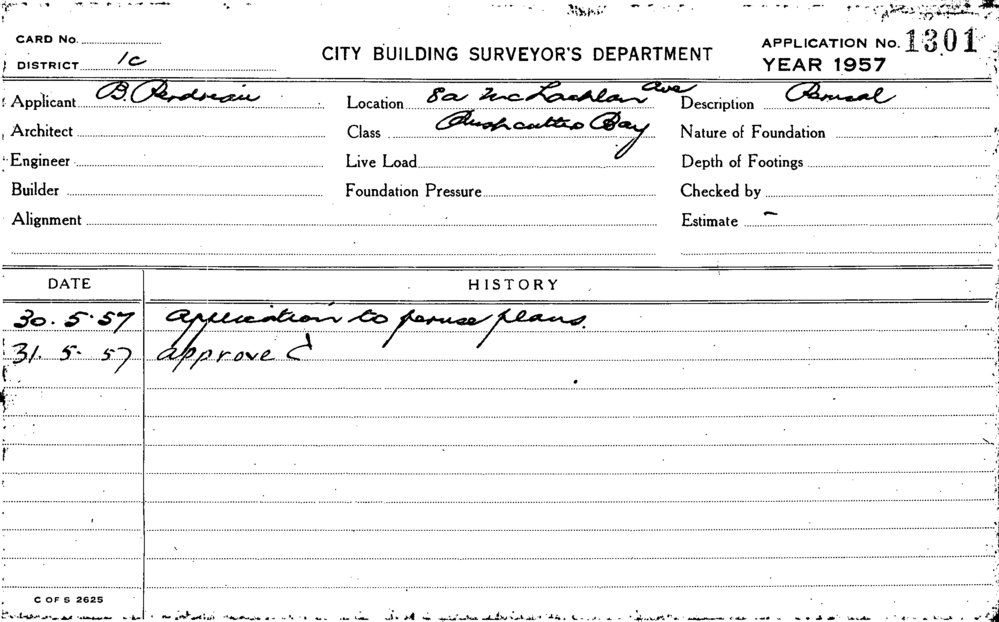 CARD No.
DISTRICT 1c
CITY BUILDING SURVEYOR'S DEPARTMENT
APPLICATION No. 1301
YEAR 1957
Applicant B. Perdriau
Location 8a McLachlan Ave
Description Perusal
Architect
Class Rushcutters Bay
Nature of Foundation
Engineer
Live Load
Depth of Footings
Builder
Foundation Pressure
Checked by
Alignment
Estimate -
DATE HISTORY
30.5.57 Application to peruse plans.
31.5.57 approved
C OF S 2625